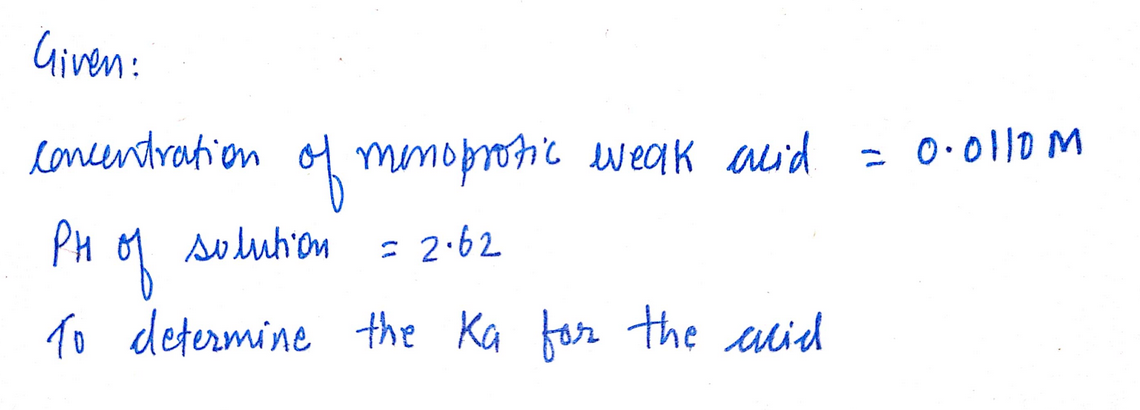 Given:
concentration of monoprotic weak acid = 0.0110 M
PH of solution = 2.62
To determine the Ka for the acid